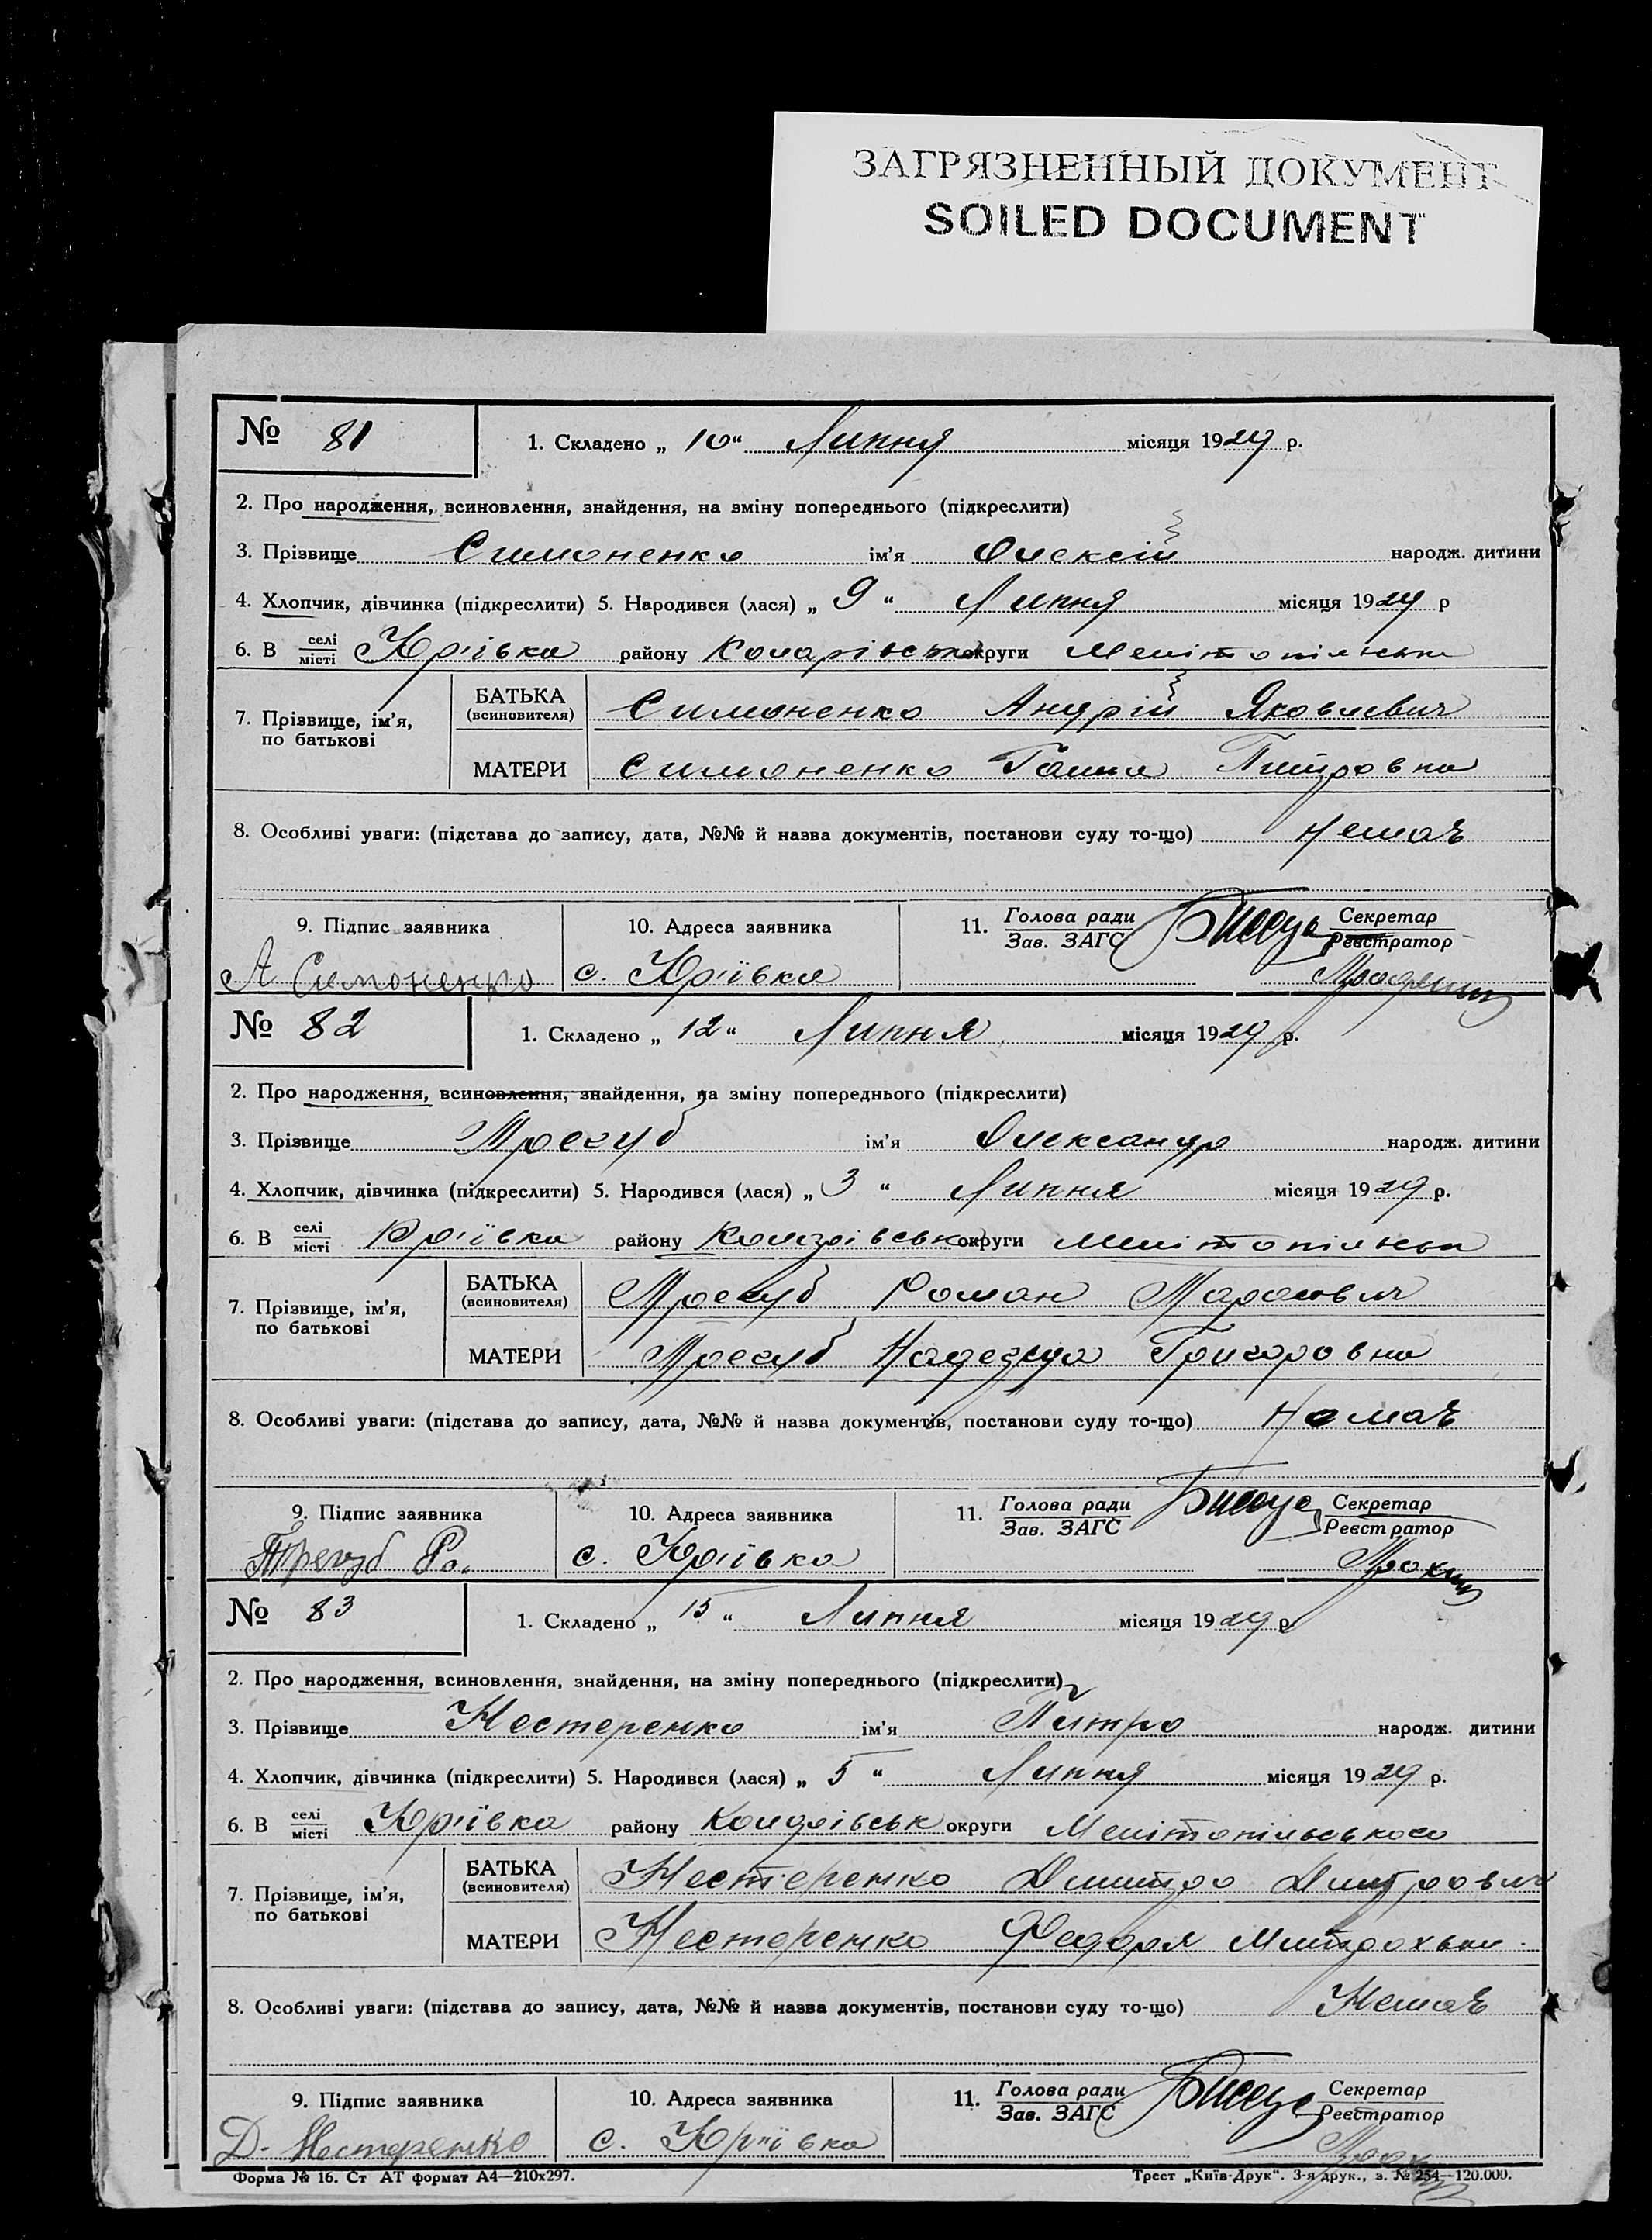 ЗАГРЯЗНЕННЫЙ ДОКУМЕНТ
SOILED DOCUMENT
№ 81 1. Складено „ 10 “ Липня місяця 1929 р.
2. Про народження, всиновлення, знайдення, на зміну попереднього (підкреслити)
3. Прізвище Симоненко ім’я Олексій народж. дитини
4. Хлопчик, дівчинка (підкреслити) 5. Народився (лася) „ 9 “ Липня місяця 1929 р
6. В селі місті Юріівка району округи
7. Прізвище, ім’я, по батькові БАТЬКА (всиновителя) Симоненко Андрій Яковлевич
МАТЕРИ Симоненко Ганна
8. Особливі уваги: (підстава до запису, дата, №№ й назва документів, постанови суду то-що) Немає
9. Підпис заявника 10. Адреса заявника 11. Голова ради Зав. ЗАГС Секретар Реєстратор
А Симоненко с. Юріївка
№ 82 1. Складено „ 12 “ Липня місяця 1929 р.
2. Про народження, всиновлення, знайдення, на зміну попереднього (підкреслити)
3. Прізвище Трегуб ім’я Олександр народж. дитини
4. Хлопчик, дівчинка (підкреслити) 5. Народився (лася) „ 3 “ Липня місяця 1929 р.
6. В селі місті Юріївка району округи
7. Прізвище, ім’я, по батькові БАТЬКА (всиновителя) Трегуб Роман
МАТЕРИ Трегуб Надежда Григоровна
8. Особливі уваги: (підстава до запису, дата, №№ й назва документів, постанови суду то-що) Немає
9. Підпис заявника 10. Адреса заявника 11. Голова ради Зав. ЗАГС Секретар Реєстратор
Трегуб Ро. с. Юріївка
№ 83 1. Складено „ 15 “ Липня місяця 1929 р
2. Про народження, всиновлення, знайдення, на зміну попереднього (підкреслити)
3. Прізвище Нестеренко ім’я Питро народж. дитини
4. Хлопчик, дівчинка (підкреслити) 5. Народився (лася) „ 5 “ Липня місяця 1929 р.
6. В селі місті Юріївка району округи Мелітопільського
7. Прізвище, ім’я, по батькові БАТЬКА (всиновителя) Нестеренко Дмитро Дмитрович
МАТЕРИ Нестеренко Федора
8. Особливі уваги: (підстава до запису, дата, №№ й назва документів, постанови суду то-що) Немає
9. Підпис заявника 10. Адреса заявника 11. Голова ради Зав. ЗАГС Секретар Реєстратор
Д. Нестеренко с. Юріївка
Форма № 16. Ст АТ формат А4—210х297. Трест „Київ-Друк“. 3-я друк., з. № 254—120.000.